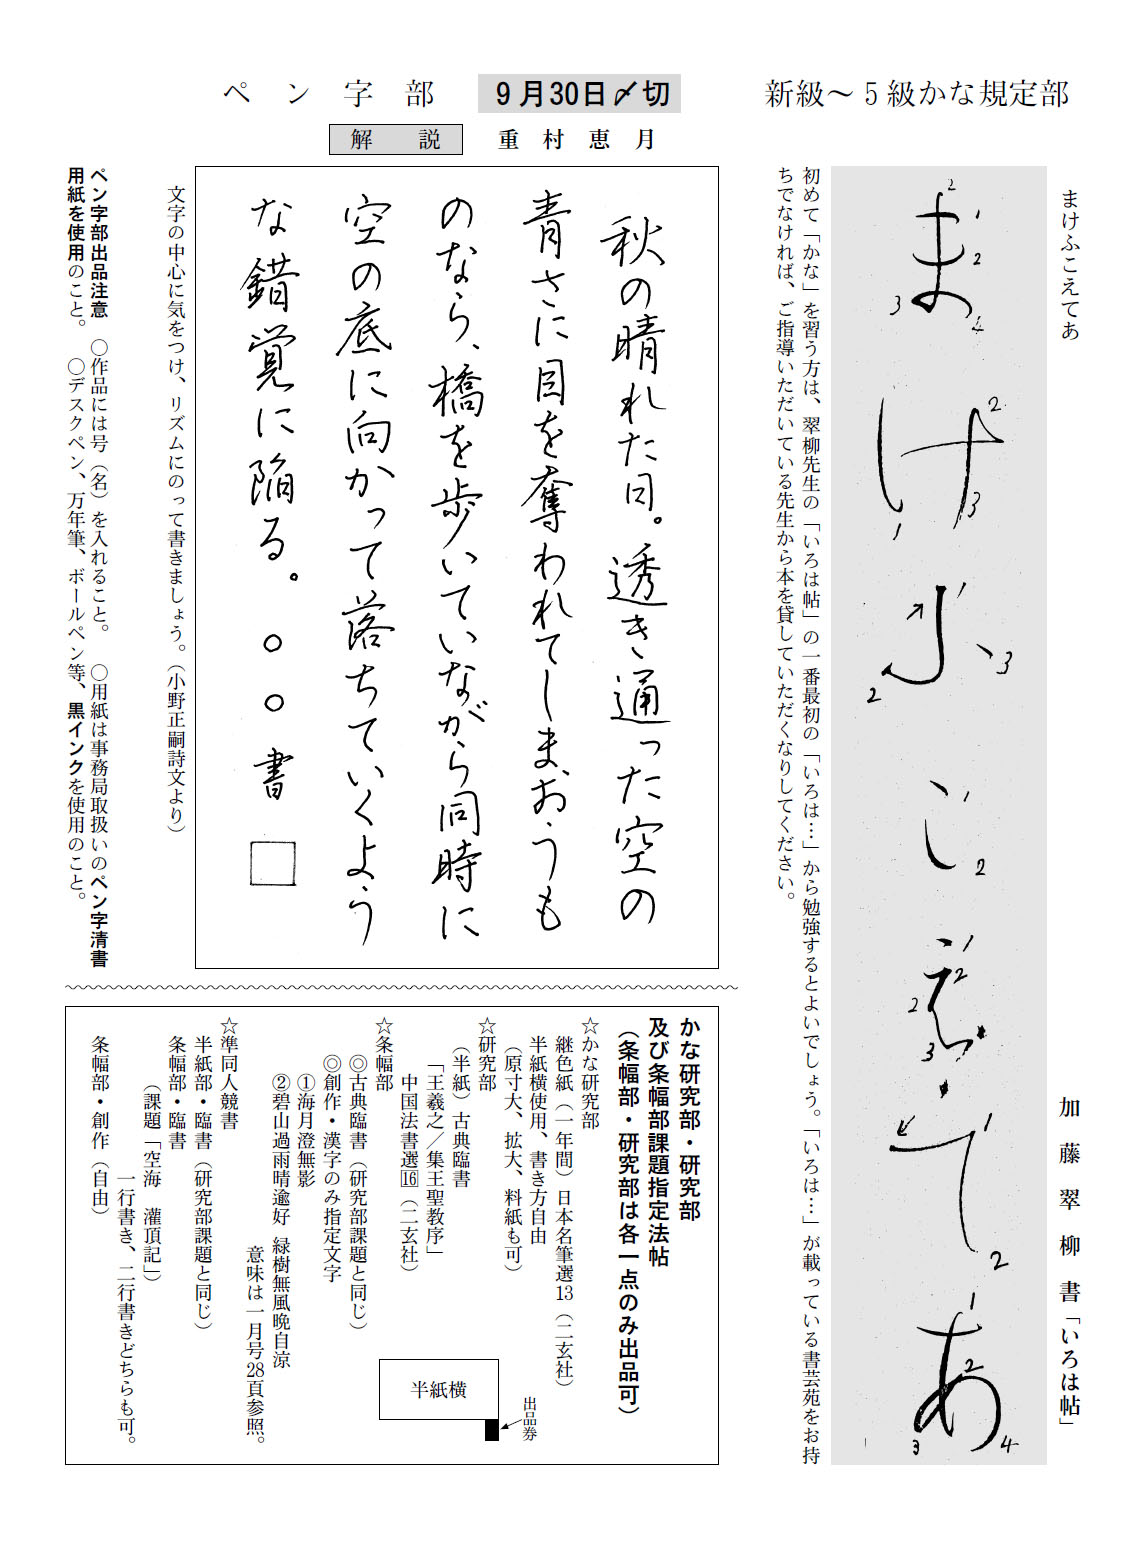 新級～5級かな規定部
まけふこえてあ
加藤翠柳書「いろは帖」
ま
け
ふ
こ
え
て
あ
初めて「かな」を習う方は、翠柳先生の「いろは帖」の一番最初の「いろは…」から勉強するとよいでしょう。「いろは…」が載っている書芸苑をお持
ちでなければ、ご指導いただいている先生から本を貸していただくなりしてください。
ペン字部
9月30日〆切
解説
重村恵月
秋の晴れた日。透き通った空の
青さに目を奪われてしまおうも
のなら、橋を歩いていながら同時に
空の底に向かって落ちていくよう
な錯覚に陥る。○○書
文字の中心に気をつけ、リズムにのって書きましょう。（小野正嗣詩文より）
ペン字部出品注意　○作品には号（名）を入れること。　○用紙は事務局取扱いのペン字清書
用紙を使用のこと。　○デスクペン、万年筆、ボールペン等、黒インクを使用のこと。
かな研究部・研究部
及び条幅部課題指定法帖
（条幅部・研究部は各一点のみ出品可）
☆かな研究部
継色紙（一年間）日本名筆選13（二玄社）
半紙横使用、書き方自由
（原寸大、拡大、料紙も可）
☆研究部
（半紙）古典臨書
「王羲之／集王聖教序」
中国法書選16（二玄社）
☆条幅部
◎古典臨書（研究部課題と同じ）
◎創作・漢字のみ指定文字
①海月澄無影
②碧山過雨晴逾好　緑樹無風晩自涼
意味は一月号28頁参照。
☆準同人競書
半紙部・臨書（研究部課題と同じ）
条幅部・臨書
（課題「空海　灌頂記」）
一行書き、二行書きどちらも可。
条幅部・創作（自由）
半紙横
出品券